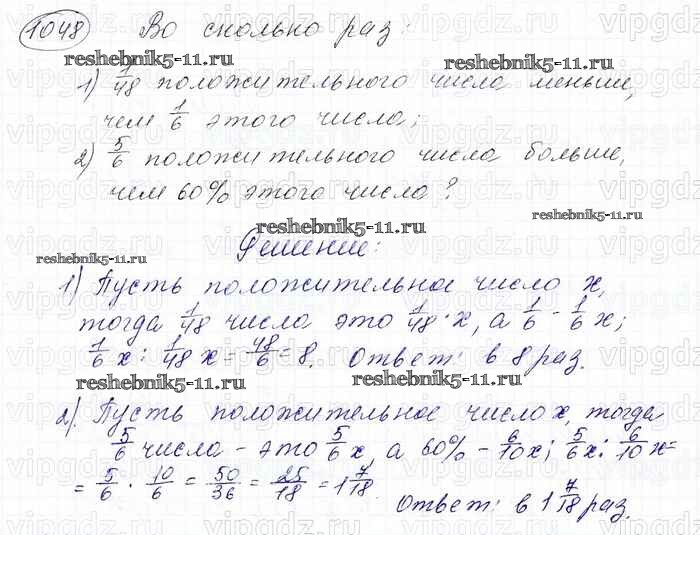 1048 Во сколько раз:
reshebnik5-11.ru
reshebnik5-11.ru
1) 1/48 положительного числа меньше,
чем 1/6 этого числа;
2) 5/6 положительного числа больше,
чем 60% этого числа?
reshebnik5-11.ru
reshebnik5-11.ru
Решение:
reshebnik5-11.ru
1) Пусть положительное число x,
тогда 1/48 числа это 1/48 · x, а 1/6 - 1/6 x;
1/6 x : 1/48 x = 48/6 = 8. Ответ: в 8 раз.
reshebnik5-11.ru
reshebnik5-11.ru
2). Пусть положительное число x, тогда
5/6 числа - это 5/6 x, а 60% - 6/10 x; 5/6 x : 6/10 x =
= 5/6 · 10/6 = 50/36 = 25/18 = 1 7/18.
Ответ: в 1 7/18 раз.